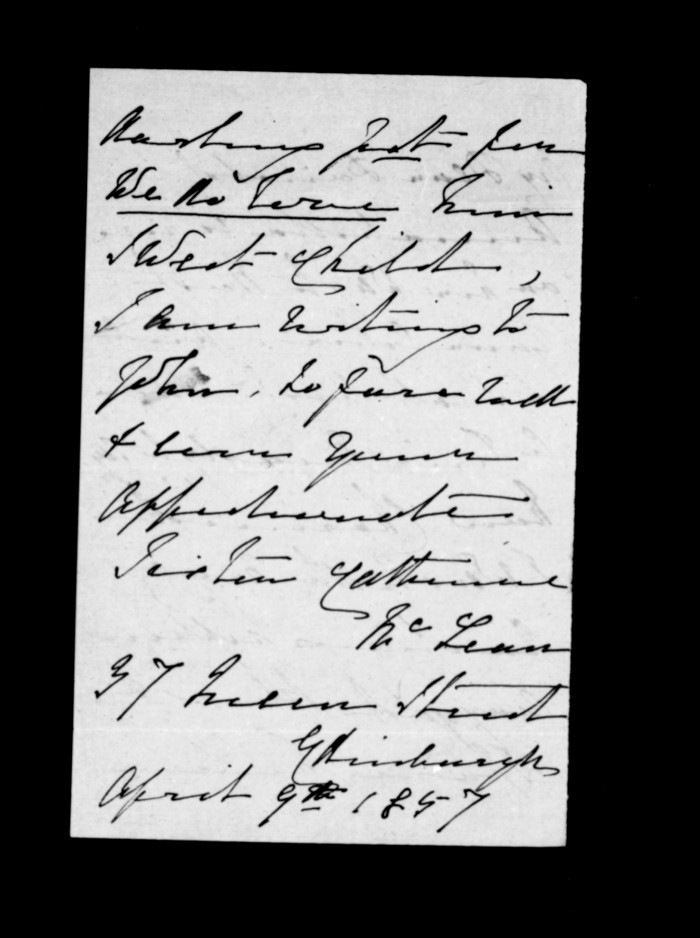 We do love him
Sweet Child,
I am writing to
John. So fare well
& ever your
affectionate
Sister Catherine
Mc Lean
37 Queen Street
Edinburgh
April 9th 1857